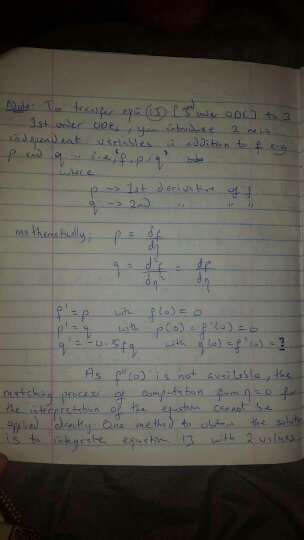 Note: To transfer eqn (13) [3rd order ODE] to 3
1st order ODEs, you introduce 2 new
independent variables in addition to f eg
p and q ... i.e, f, p, q
where
p → 1st derivative of f
q → 2nd " " "
mathematically, p = df/dη
q = d²f/dη² = dp/dη
f' = p with f(0) = 0
p' = q with p(0) = f'(0) = 0
q' = -0.5fq with q(0) = f''(0) = ?
As f''(0) is not available, the
matching process of computation from η=0 for
the interpretation of the equation cannot be
applied directly. One method to obtain the solution
is to integrate equation 13 with 2 values